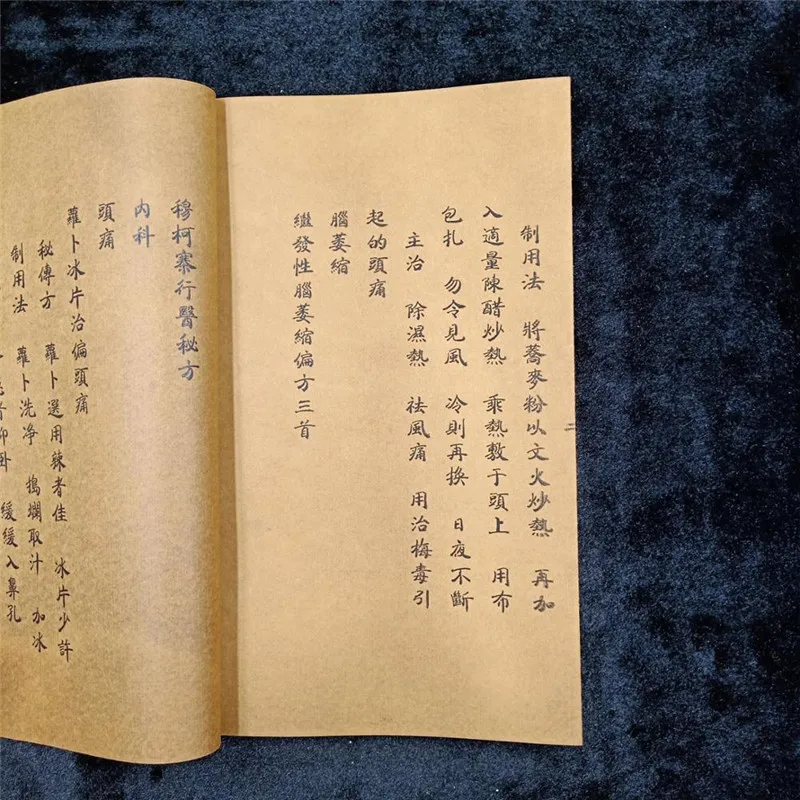 制用法 將蕎麥粉以文火炒熱 再加
入適量陳醋炒熱 乘熱敷于頭上 用布
包扎 勿令見風 冷則再換 日夜不斷
主治 除濕熱 祛風痛 用治梅毒引
起的頭痛
腦萎縮
繼發性腦萎縮偏方三首
穆柯寨行醫秘方
内科
頭痛
蘿卜冰片治偏頭痛
秘傳方 蘿卜選用辣者佳 冰片少許
制用法 蘿卜洗净 搗爛取汁 加冰
者仰卧 緩緩入鼻孔